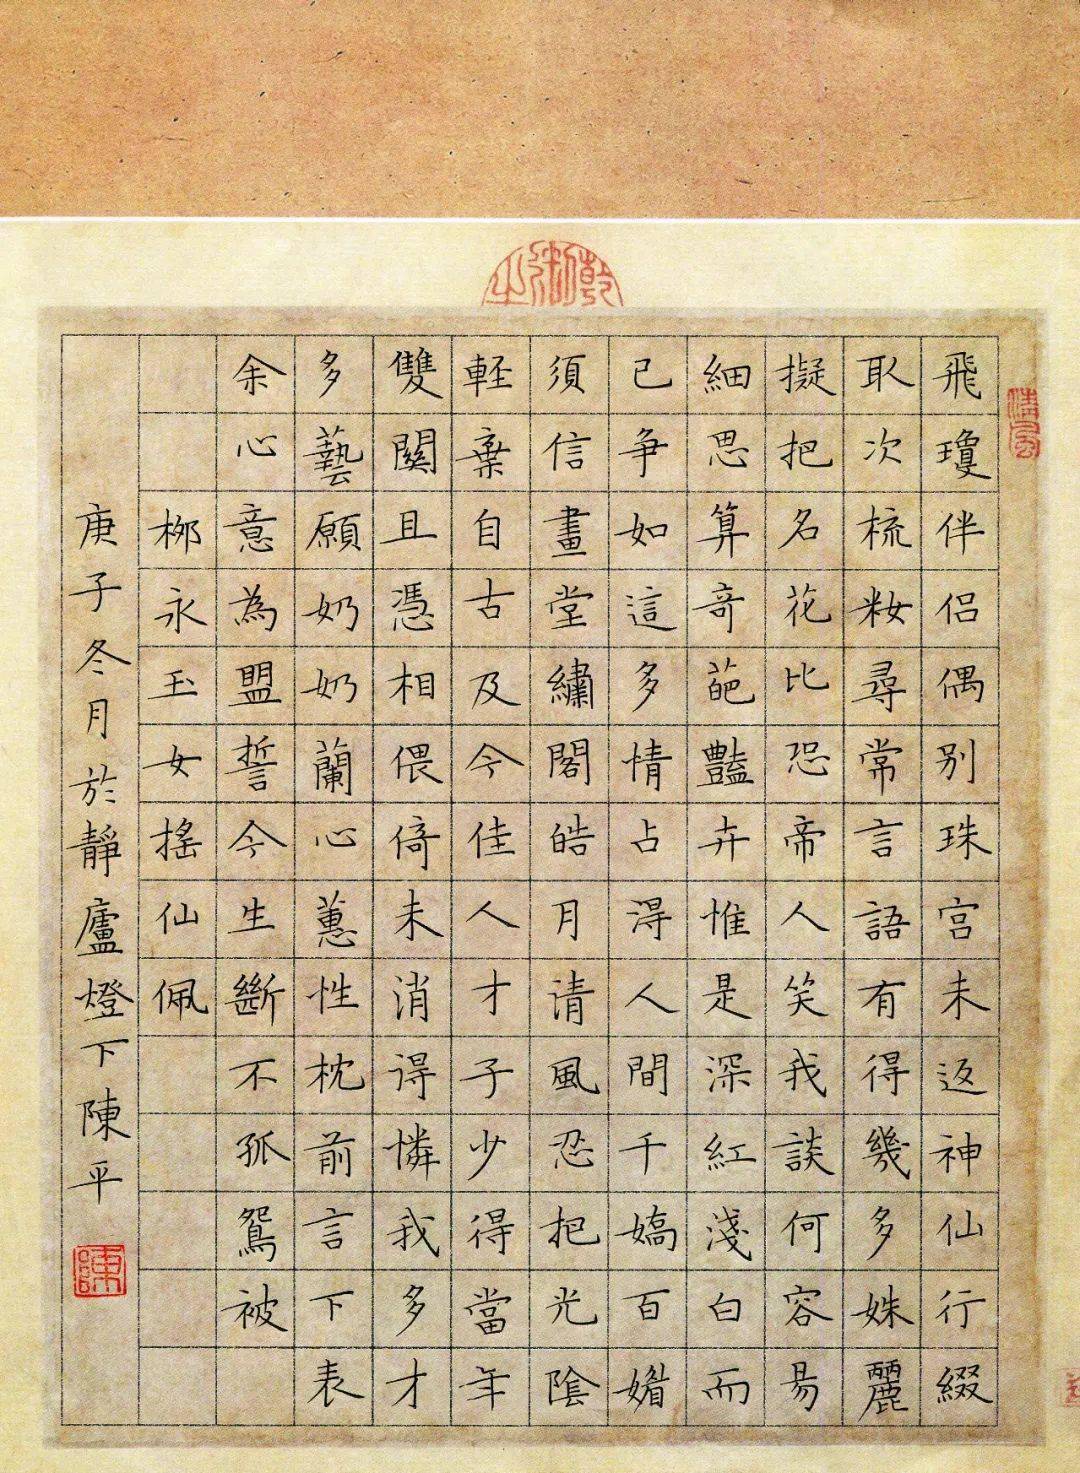 飛瓊伴侶偶别珠宫未返神仙行綴
取次梳籹尋常言語有得幾多姝麗
擬把名花比恐帝人笑我談何容易
細思算奇葩豔卉惟是深紅淺白而
已争如這多情占得人間千嬌百媚
須信畫堂繡閣皓月清風忍把光陰
軽棄自古及今佳人才子少得當年
雙關且憑相偎倚未消得憐我多才
多藝願奶奶蘭心蕙性枕前言下表
余心意為盟誓今生斷不孤鴛被
柳永玉女搖仙佩
庚子冬月於靜廬燈下陳平
清風
陳